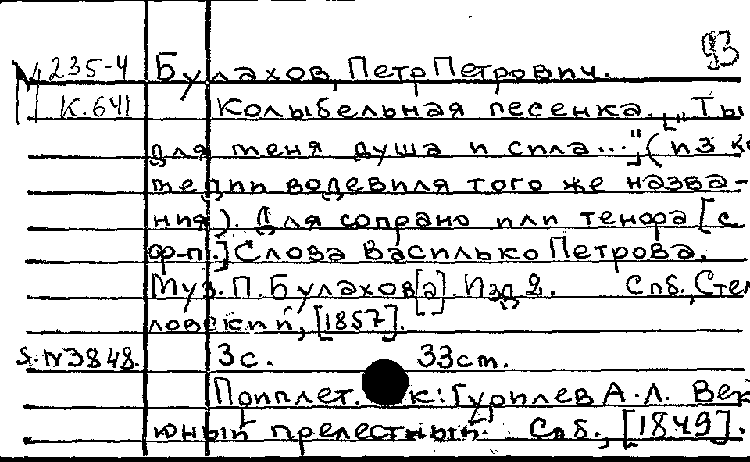 93
М 235-4 Булахов, Петр Петрович.
К.641 Колыбельная песенка. „Ты
для меня душа и сила...", (из ко
медии водевиля того же назва-
ния). Для сопрано или тенора [с
ф-п.] Слова Василько Петрова.
Муз. П. Булахов[а]. Изд. 2. Спб., Стел
ловский, [1857].
S. N3848. 3с. 33см.
Приплет. к: Гурилев А. Л. Век
юный прелестный. Спб., [1849].